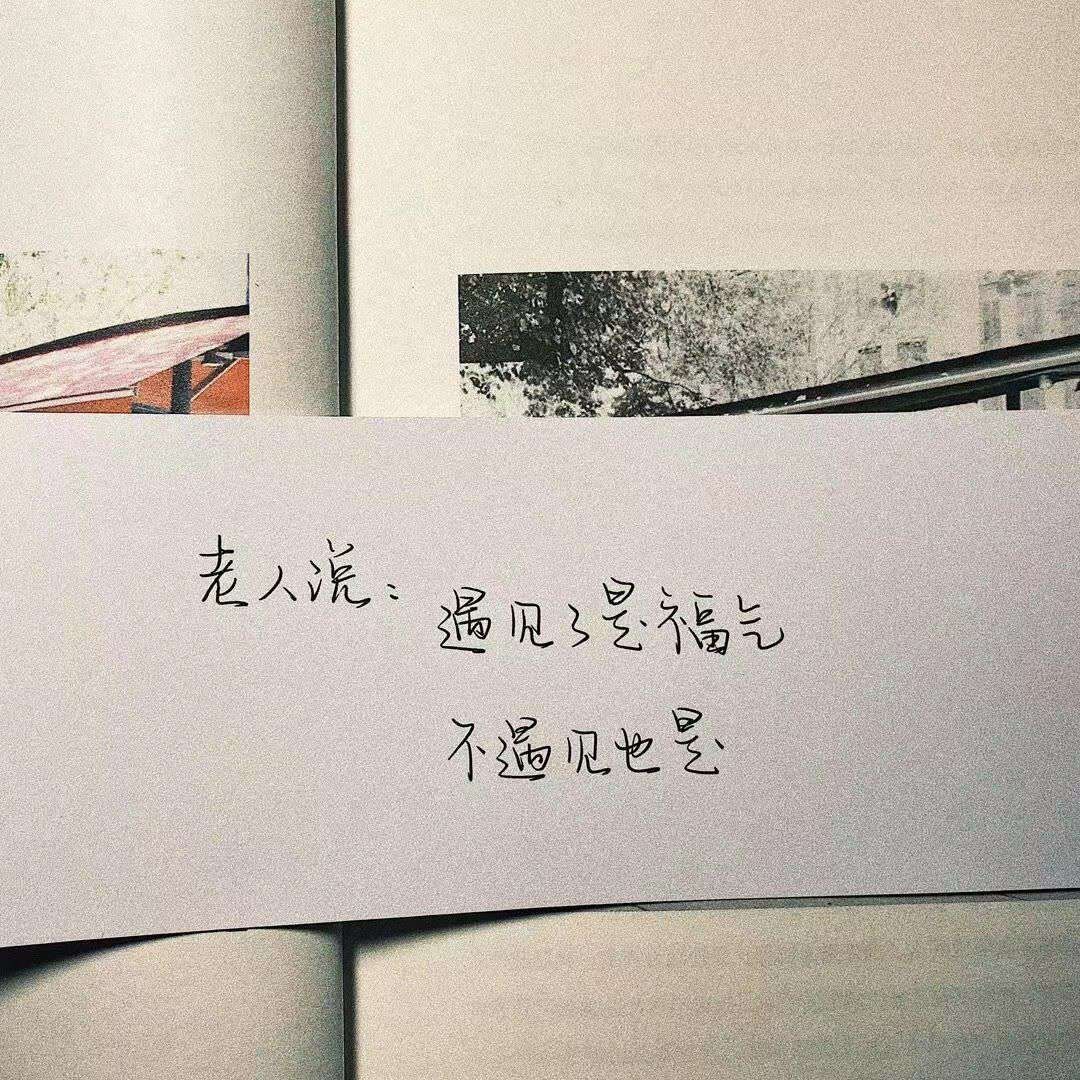 老人说：
遇见了是福气
不遇见也是